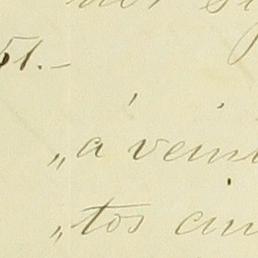 51.—
„á veinti
„tos cin